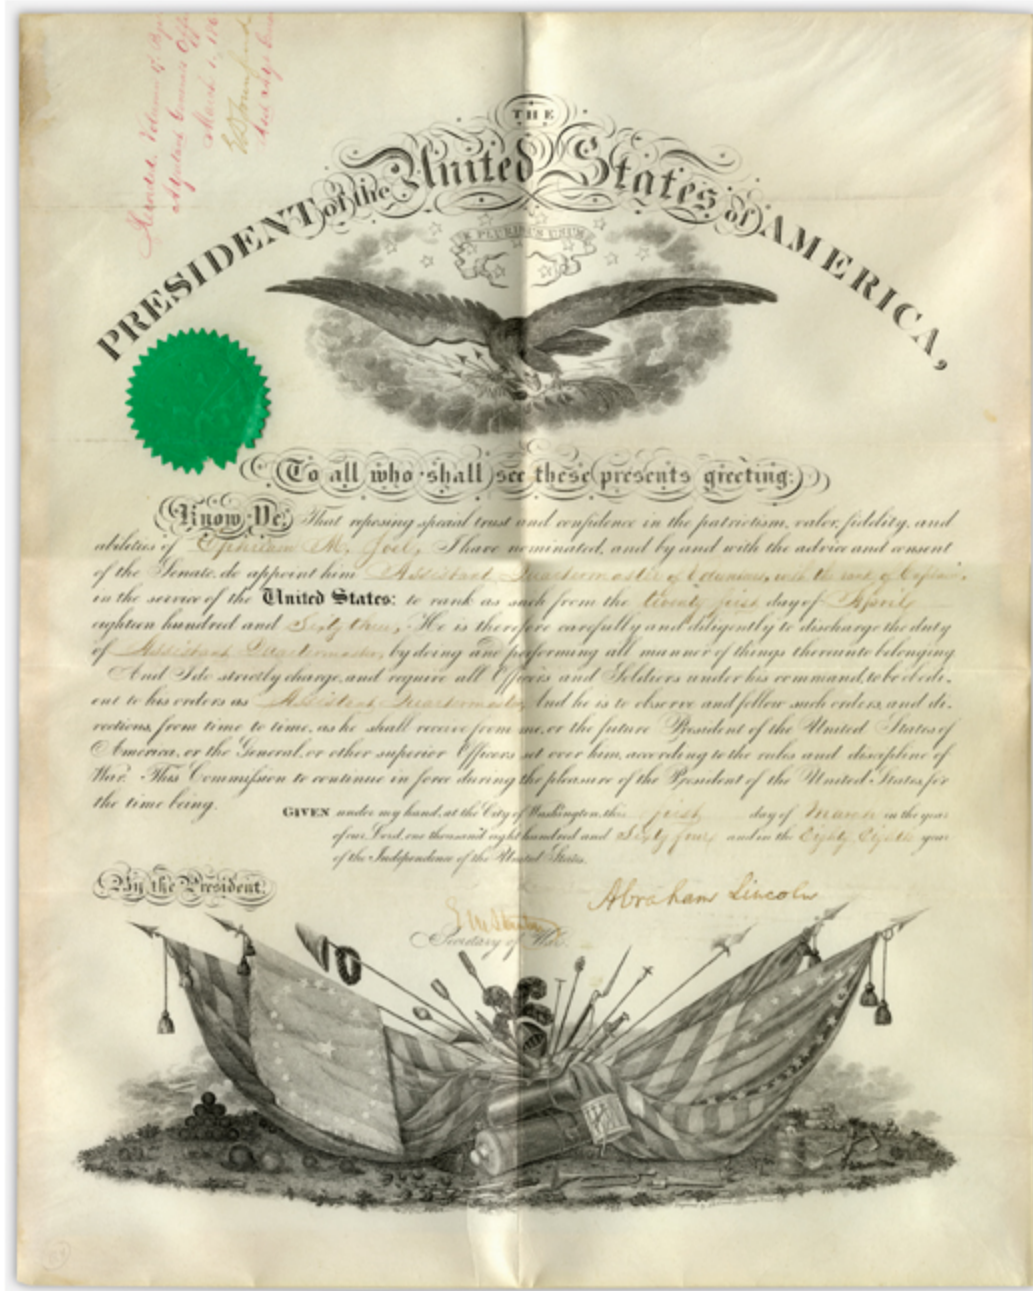 Recorded, Volume 17, Page
Adjutant General's Office
March 1. 186
E D Townsend
Asst Adjt Genl
THE
PRESIDENT of the United States of AMERICA,
E PLURIBUS UNUM
To all who shall see these presents greeting:
Know Ye, That reposing special trust and confidence in the patriotism, valor, fidelity, and
abilities of Ephraim M. Joel, I have nominated, and by and with the advice and consent
of the Senate, do appoint him Assistant Quartermaster of Volunteers, with the rank of Captain,
in the service of the United States: to rank as such from the twenty first day of April
eighteen hundred and Sixty three, He is therefore carefully and diligently to discharge the duty
of Assistant Quartermaster, by doing and performing all manner of things thereunto belonging.
And I do strictly charge, and require all Officers and Soldiers under his command, to be obedi-
ent to his orders as Assistant Quartermaster And he is to observe and follow such orders, and di-
rections, from time to time, as he shall receive from me, or the future President of the United States of
America, or the General, or other superior Officers set over him, according to the rules and discipline of
War. This Commission to continue in force during the pleasure of the President of the United States, for
the time being.
GIVEN under my hand, at the City of Washington, this first day of March in the year
of our Lord, one thousand eight hundred and Sixty four and in the Eighty Eighth year
of the Independence of the United States.
By the President,
Abraham Lincoln
E M Stanton
Secretary of War.